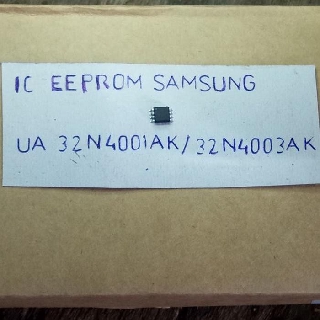 IC EEPROM SAMSUNG
UA 32N4001AK/32N4003AK